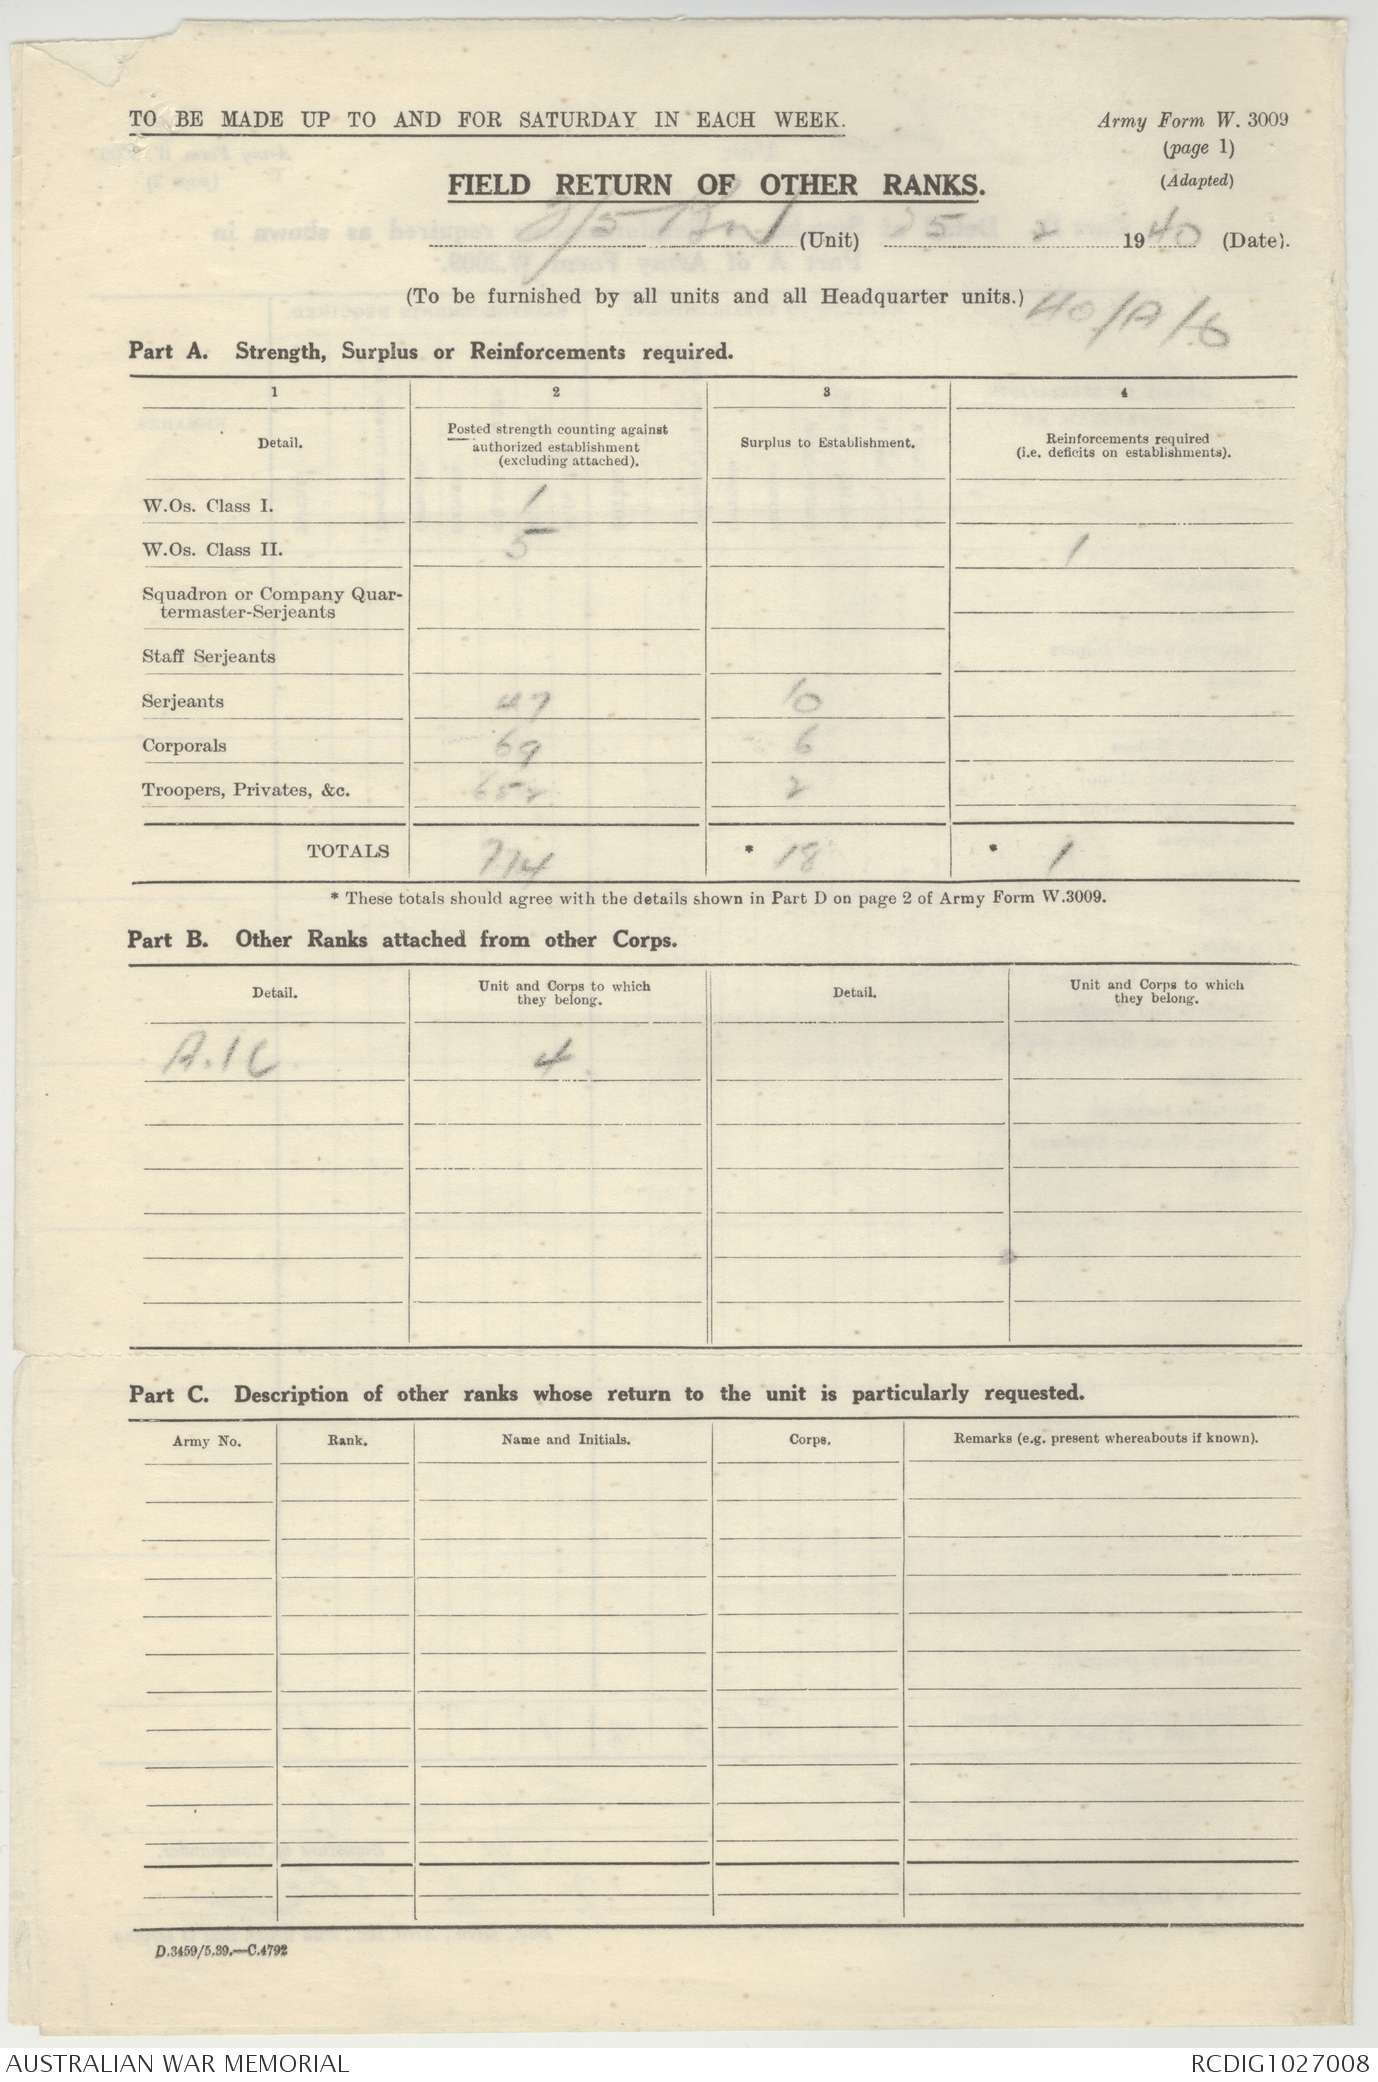 TO BE MADE UP TO AND FOR SATURDAY IN EACH WEEK.
Army Form W. 3009
(page 1)
(Adapted)
FIELD RETURN OF OTHER RANKS.
2/5 Bn (Unit) 25 2 1940 (Date).
(To be furnished by all units and all Headquarter units.)
40/A/6
Part A. Strength, Surplus or Reinforcements required.
1 2 3 4
Detail.
Posted strength counting against
authorized establishment
(excluding attached).
Surplus to Establishment.
Reinforcements required
(i.e. deficits on establishments).
W.Os. Class I. 1
W.Os. Class II. 5 1
Squadron or Company Quar-
termaster-Serjeants
Staff Serjeants
Serjeants 47 10
Corporals 69 6
Troopers, Privates, &c. 652 2
TOTALS 774 * 18 * 1
* These totals should agree with the details shown in Part D on page 2 of Army Form W.3009.
Part B. Other Ranks attached from other Corps.
Detail.
Unit and Corps to which
they belong.
Detail.
Unit and Corps to which
they belong.
4
Part C. Description of other ranks whose return to the unit is particularly requested.
Army No. Rank. Name and Initials. Corps. Remarks (e.g. present whereabouts if known).
D.3459/5.39.—C.4792
AUSTRALIAN WAR MEMORIAL
RCDIG1027008